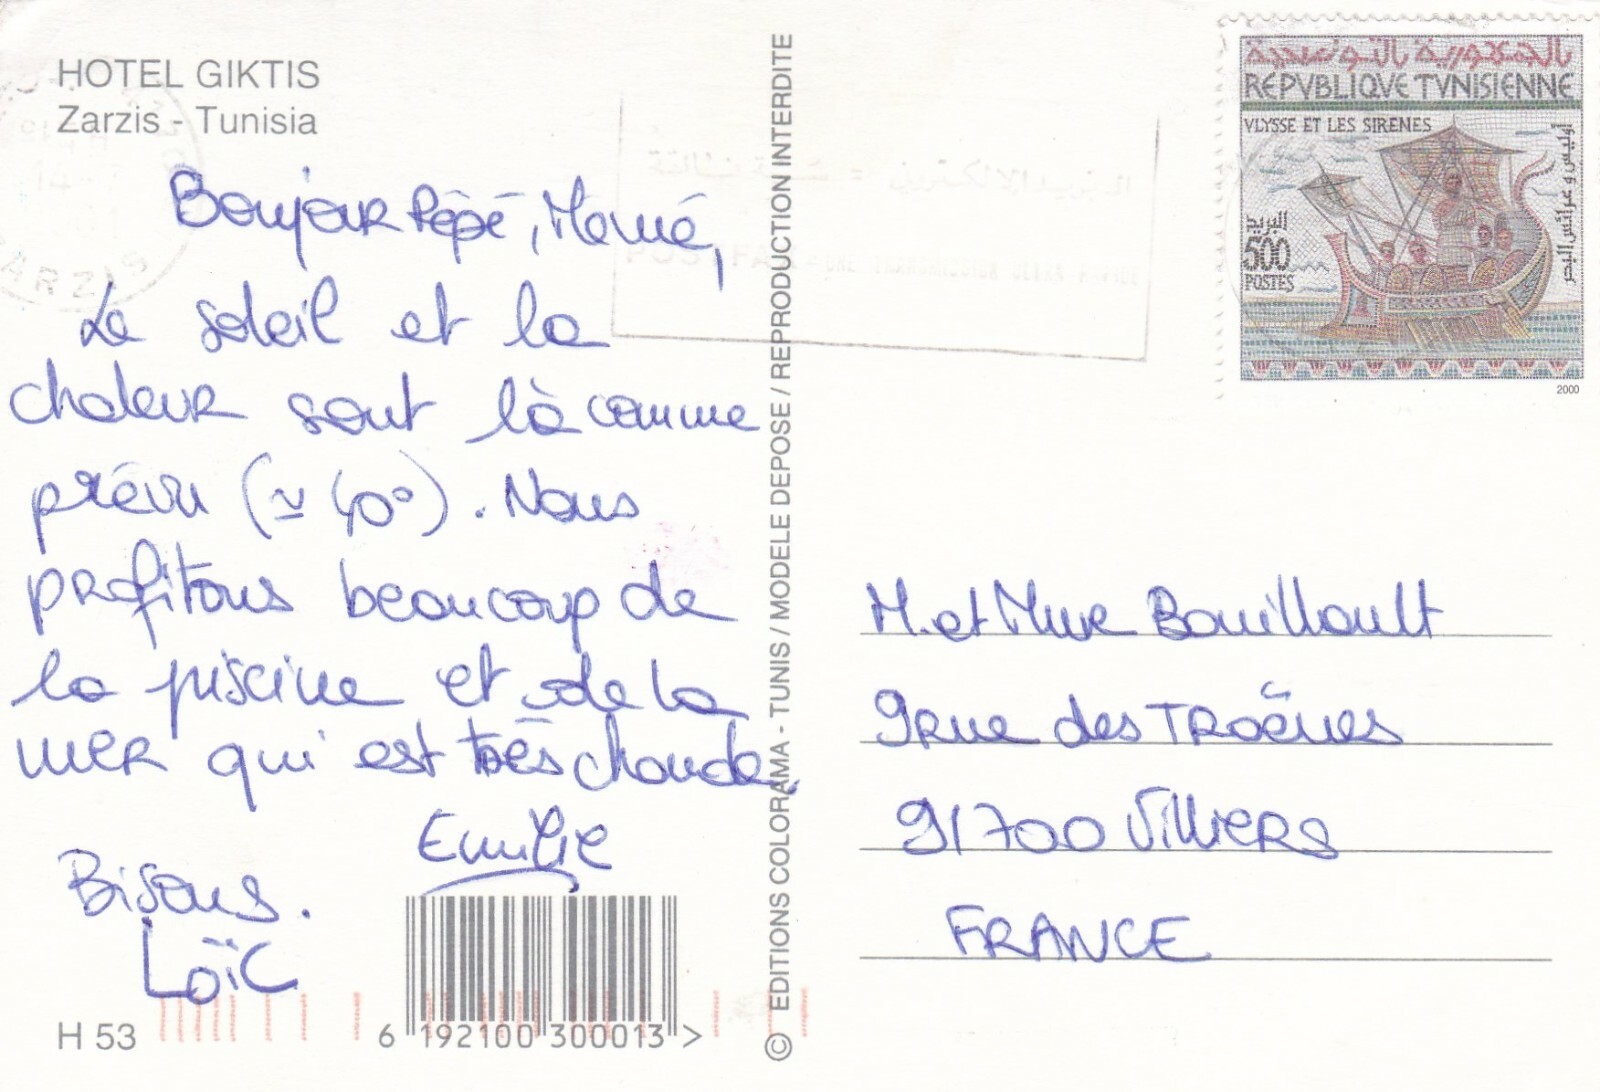 HOTEL GIKTIS
Zarzis - Tunisia
Bonjour Pépé, Mémé,
Le soleil et la
chaleur sont là comme
prévu (≃ 40°). Nous
profitons beaucoup de
la piscine et de la
mer qui est très chaude.
Emilie
Bisous.
Loïc
H 53
6 192100 300013 >
© EDITIONS COLORAMA - TUNIS / MODELE DEPOSE / REPRODUCTION INTERDITE
الجمهورية التونسية
REPVBLIQVE TVNISIENNE
VLYSSE ET LES SIRENES
أوليس و عرائس البحر
البريد
500
POSTES
2000
ARZIS
M. et Mme Bouillault
9 rue des Troënes
91700 Villiers
FRANCE